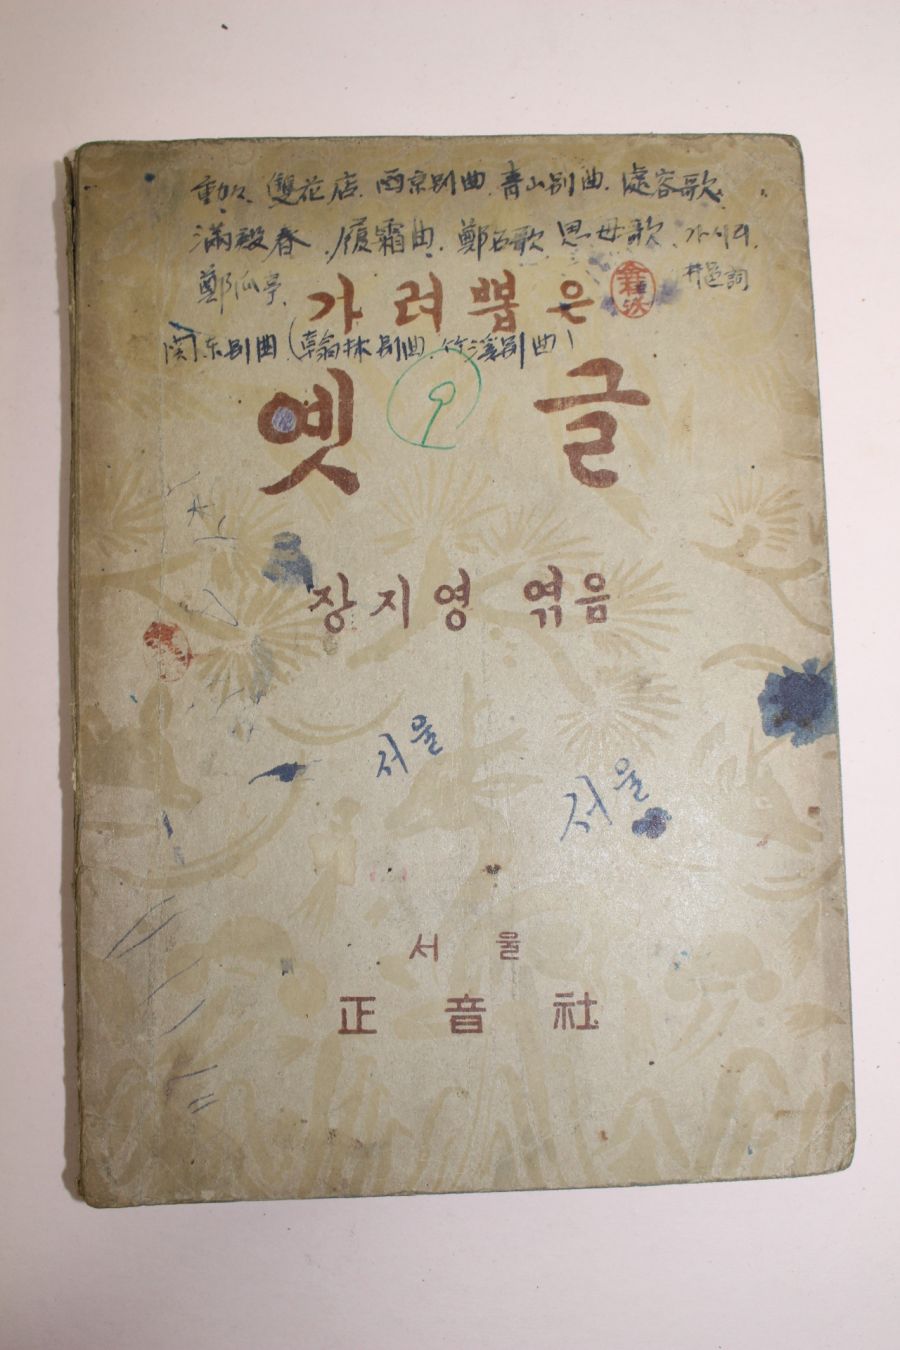 動々. 雙花店. 西京別曲. 靑山別曲. 處容歌.
滿殿春. 履霜曲. 鄭石歌. 思母歌. 가시리.
鄭瓜亭. 井邑詞
가려뽑은
関东別曲 (翰林別曲. 竹溪別曲)
옛 글
9
장지영 엮음
서울
서울
서울
正音社